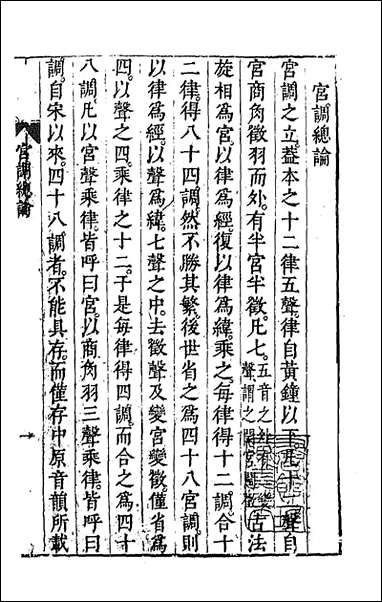 宮調總論
宮調之立葢本之十二律五聲律自黃鐘以下凡十二聲自
宮商角徵羽而外有半宮半徵凡七五音之外有二變聲謂之閏宮閏徵古法
旋相為宮以律為經復以律為緯乘之每律得十二調合十
二律得八十四調然不勝其繁後世省之為四十八宮調則
以律為經以聲為緯七聲之中去徵聲及變宮變徵僅省為
四以聲之四乘律之十二于是每律得四調而合之為四十
八調凡以宮聲乘律皆呼曰宮以商角羽三聲乘律皆呼曰
調自宋以來四十八調者不能具存而僅存中原音韻所載
宮調總論
一